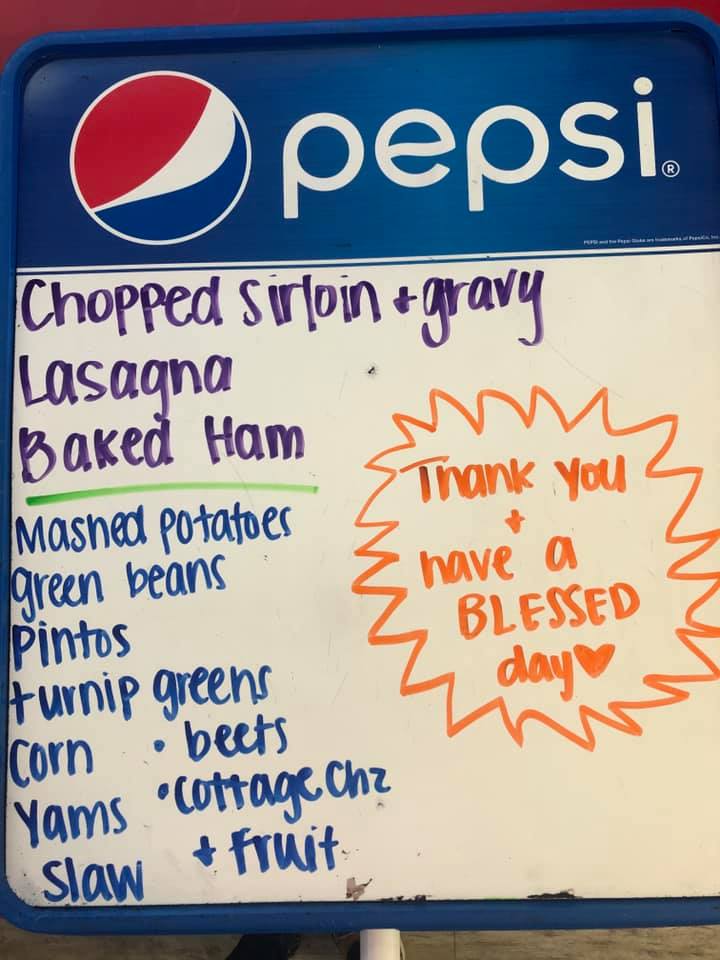 pepsi®
PEPSI and the Pepsi Globe are trademarks of PepsiCo, Inc.
Chopped Sirloin + gravy
Lasagna
Baked Ham
Mashed potatoes
green beans
Pintos
turnip greens
Corn • beets
Yams • Cottage Chz
Slaw + Fruit
Thank you
+
have a
BLESSED
day